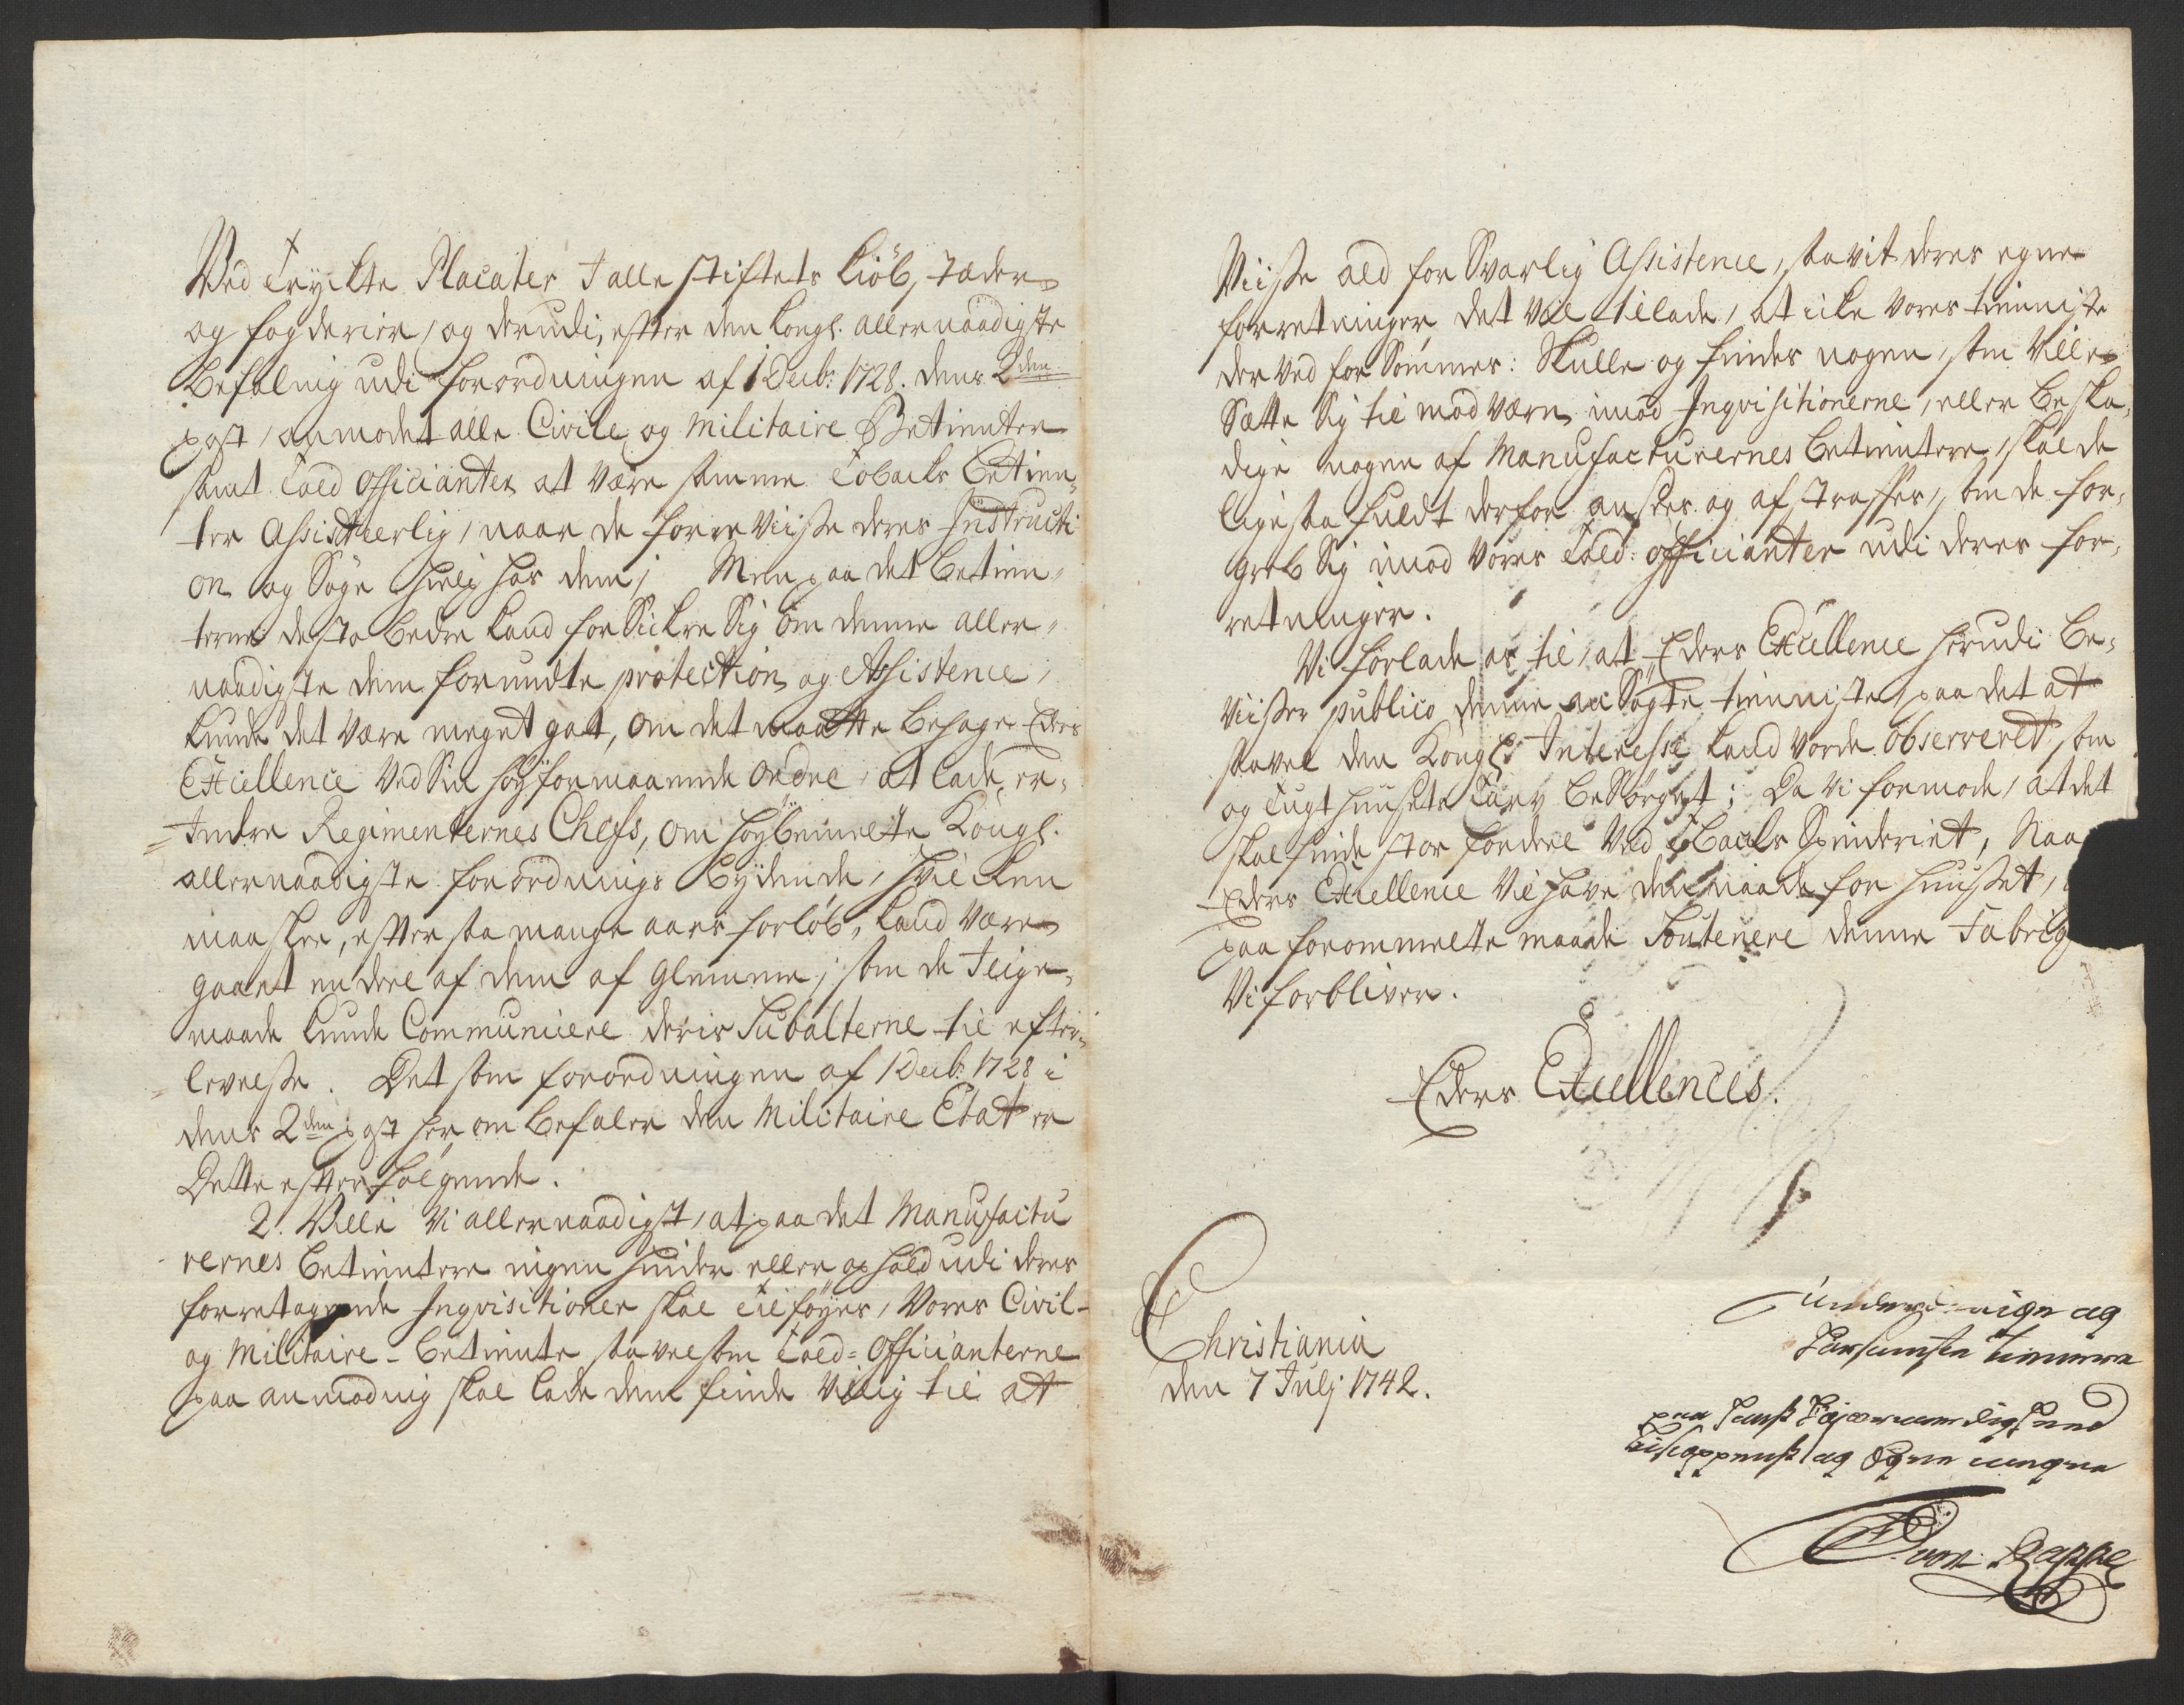 Ved Tryckte Placater J alle Stiftets Kiöb, stæder
og fogderier, og derudi, efter den Kongl. allernaadigste
Befalning udi Forordningen af 1 Decbr: 1728. dens 2den
post, anmodet alle Civile og Militaire Betienter
samt Told Officianter at være samme Tobacks Betien-
ter Assisteerlig, naar de forreviisse deres Instructi
on og Søge hielp hos dem; Men paa det Betien-
terne desto bedre kand forsickre Sig om denne aller-
naadigste dem forundte protection og Assistence,
kunde det være meget got, om det maatte behage Eders
Excellence ved Sin høyformaaende Ordre, at lade er-
Indre Regimenternes Chefs, om høybemelte Kongl.
allernaadigste forordnings Lydende, hvilcken
maaskee, efter saa mange aars forløb, kand være
gaaet en deel af dem af Glemme; som de Jlige-
maade kunde Communicere deris Subalterne til efter-
levelse. Det som forordningen af 1 Decbr: 1728 i
dens 2den post her om befaler den Militaire Etat er
Dette efterfølgende.
2. Ville Vi allernaadigst, at paa det Manufactu
rernes betientere ingen hinder eller ophold udi deres
forretagende Inqvisitioner skal tilføyes, Vores Civil-
og Militaire-betiente saavelsom Told-Officianterne
paa anmodning skal lade dem finde Villig til at
Viisse ald forsvarlig Assistence, saavit deres egne
forretninger det vil tillade, at icke vores tieniste
derved forsømmes: Skulle og findes nogen, som Ville
Sætte Sig til modværn imod Inqvisitionerne, eller beska-
dige nogen af Manufacturernes betientere, skal de
ligesaa fuldt derfor ansees og afstraffes, som de for-
greb Sig imod Vores Told-Officianter udi deres for-
retninger.
Vi forlade os til, at Eders Excellence herudi be-
viiser publico denne ansøgte tieniste, paa det at
saavel den Kongl. Interesse kand vorde observeret, som
og Tugthuusets Tarv besørget; Da Vi formode, at det
skal finde stor fordeel ved Tobacks Spinderiet, Naa
Eders Excellence Vil have den naade for huuset,
paa forommelte maade Soutenere denne Fabriq
Vi forbliver.
Eders Excellences.
Christiania
den 7 Julj 1742.
underdanige og
Gehorsamste tienere
paa
Bishoppens og Egne vegne
von Kappel